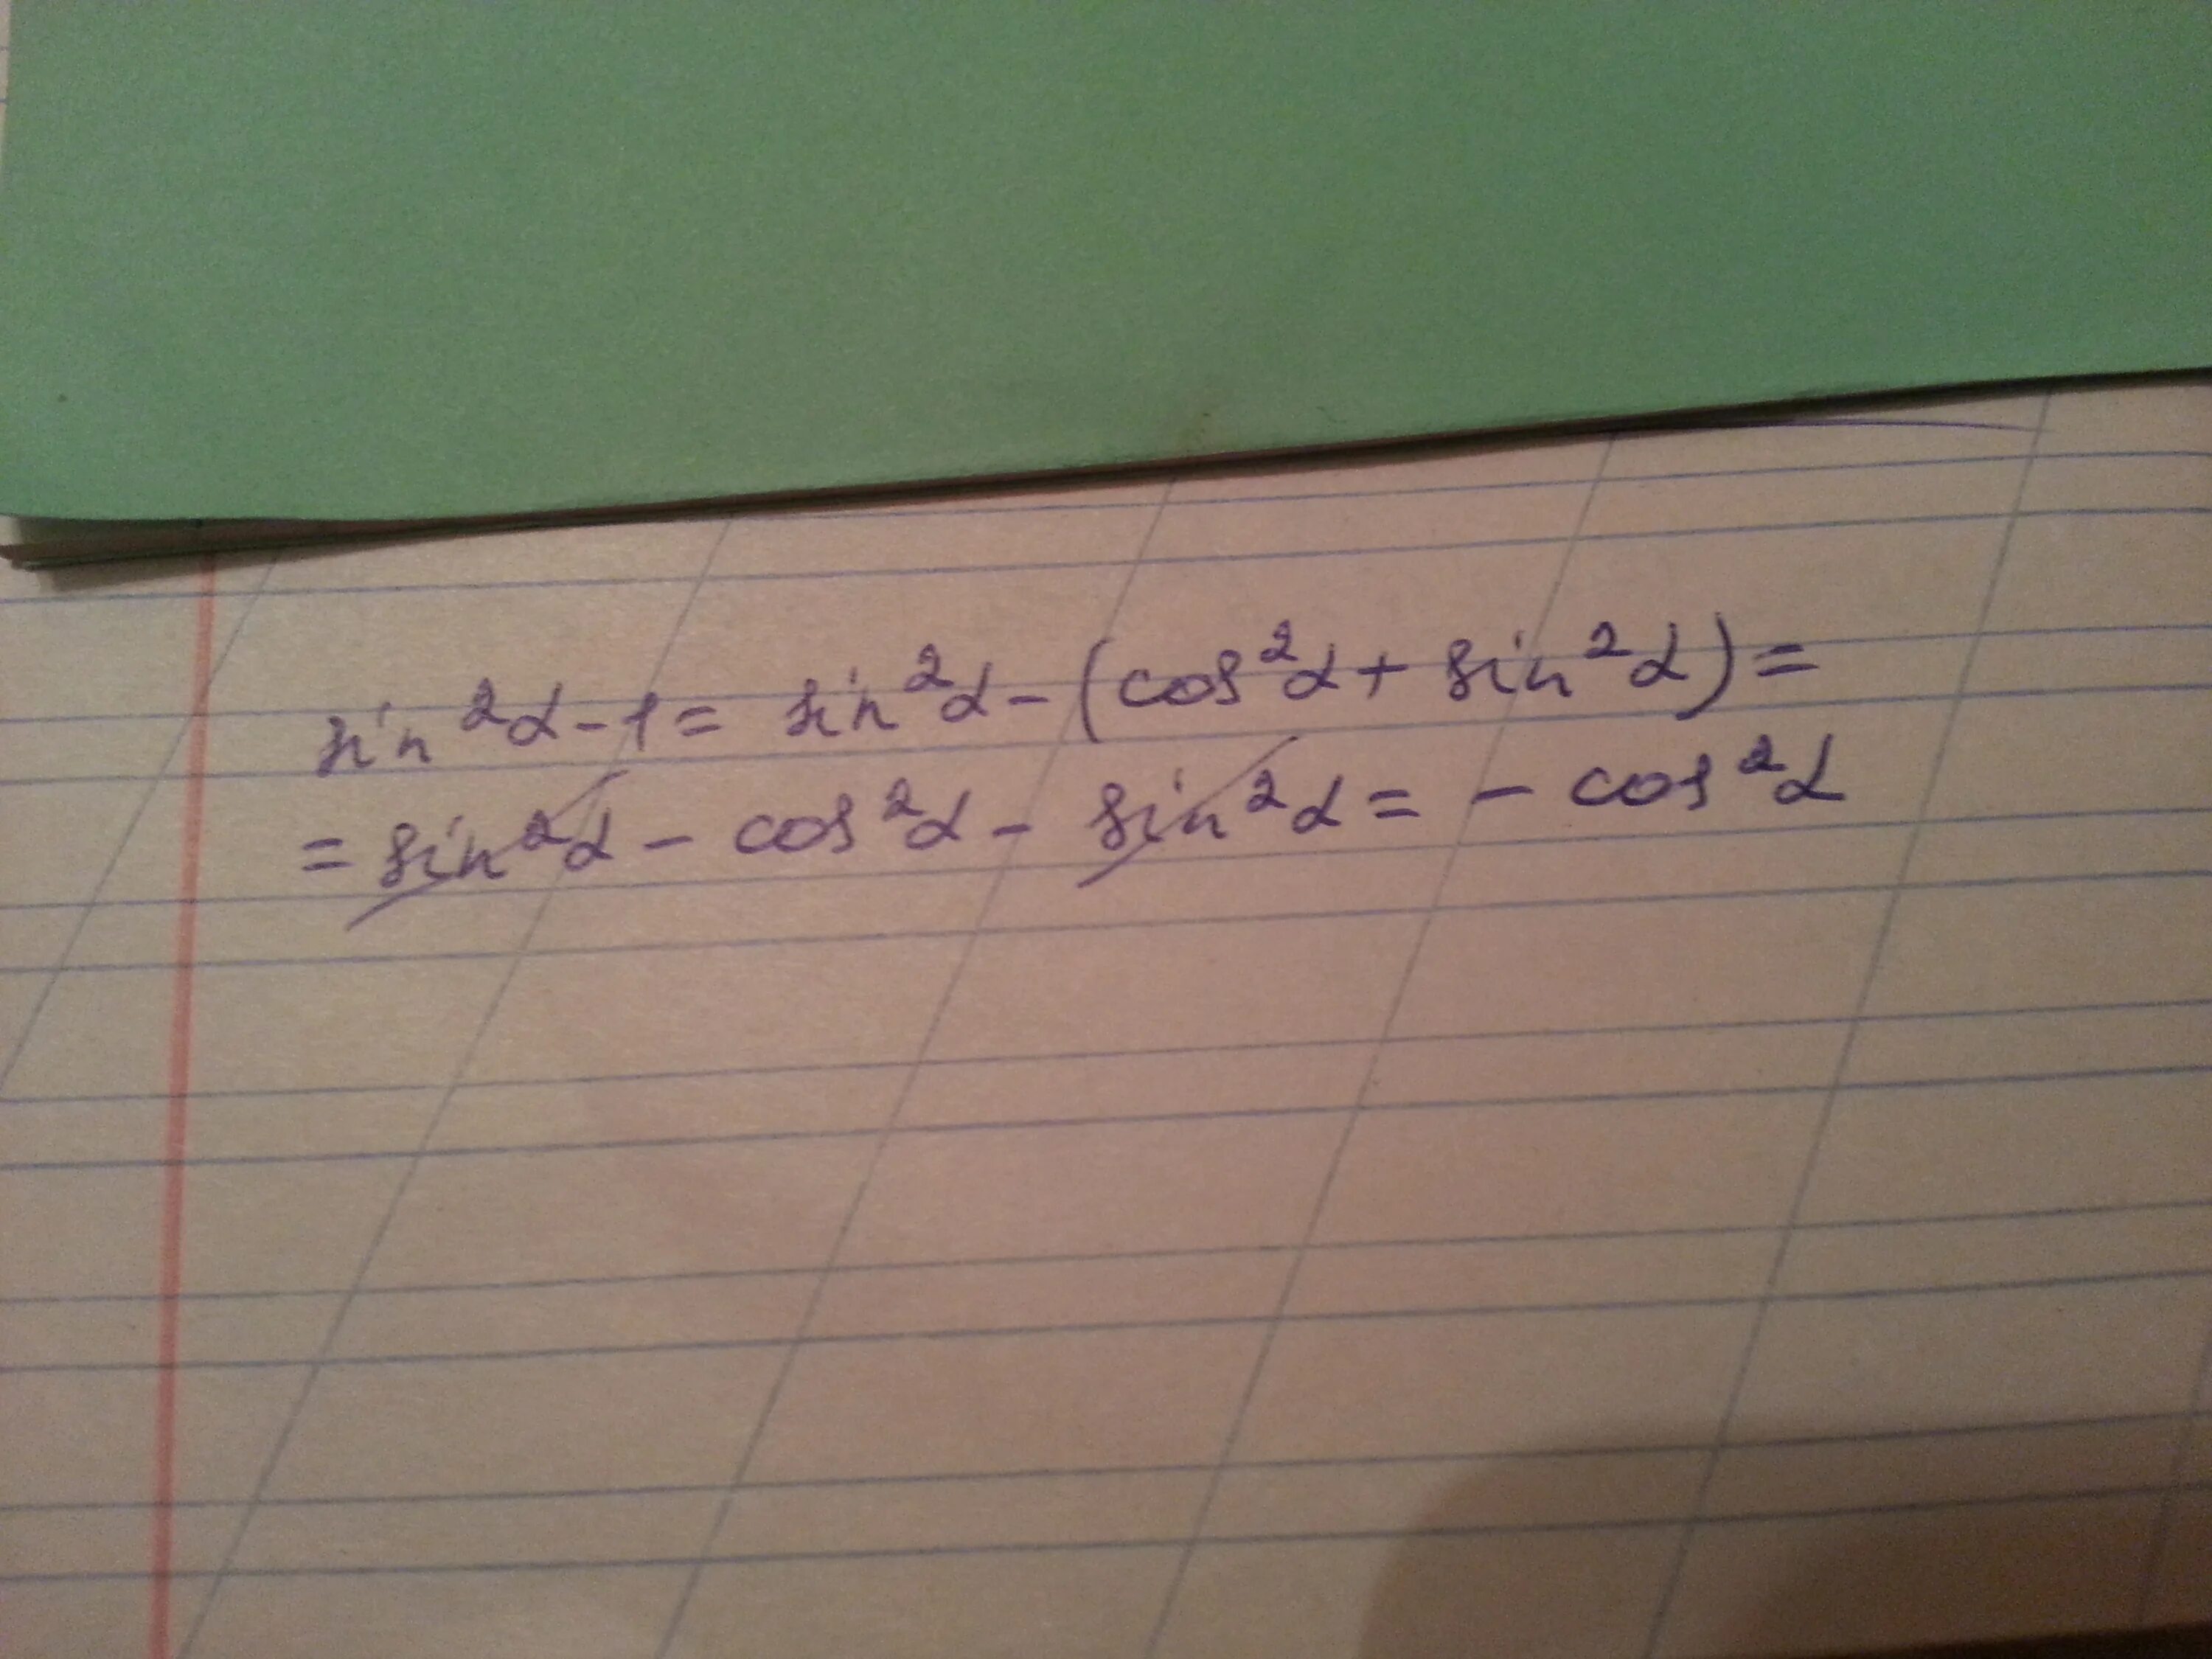 sin²α - 1 = sin²α - (cos²α + sin²α) =
= sin²α - cos²α - sin²α = - cos²α